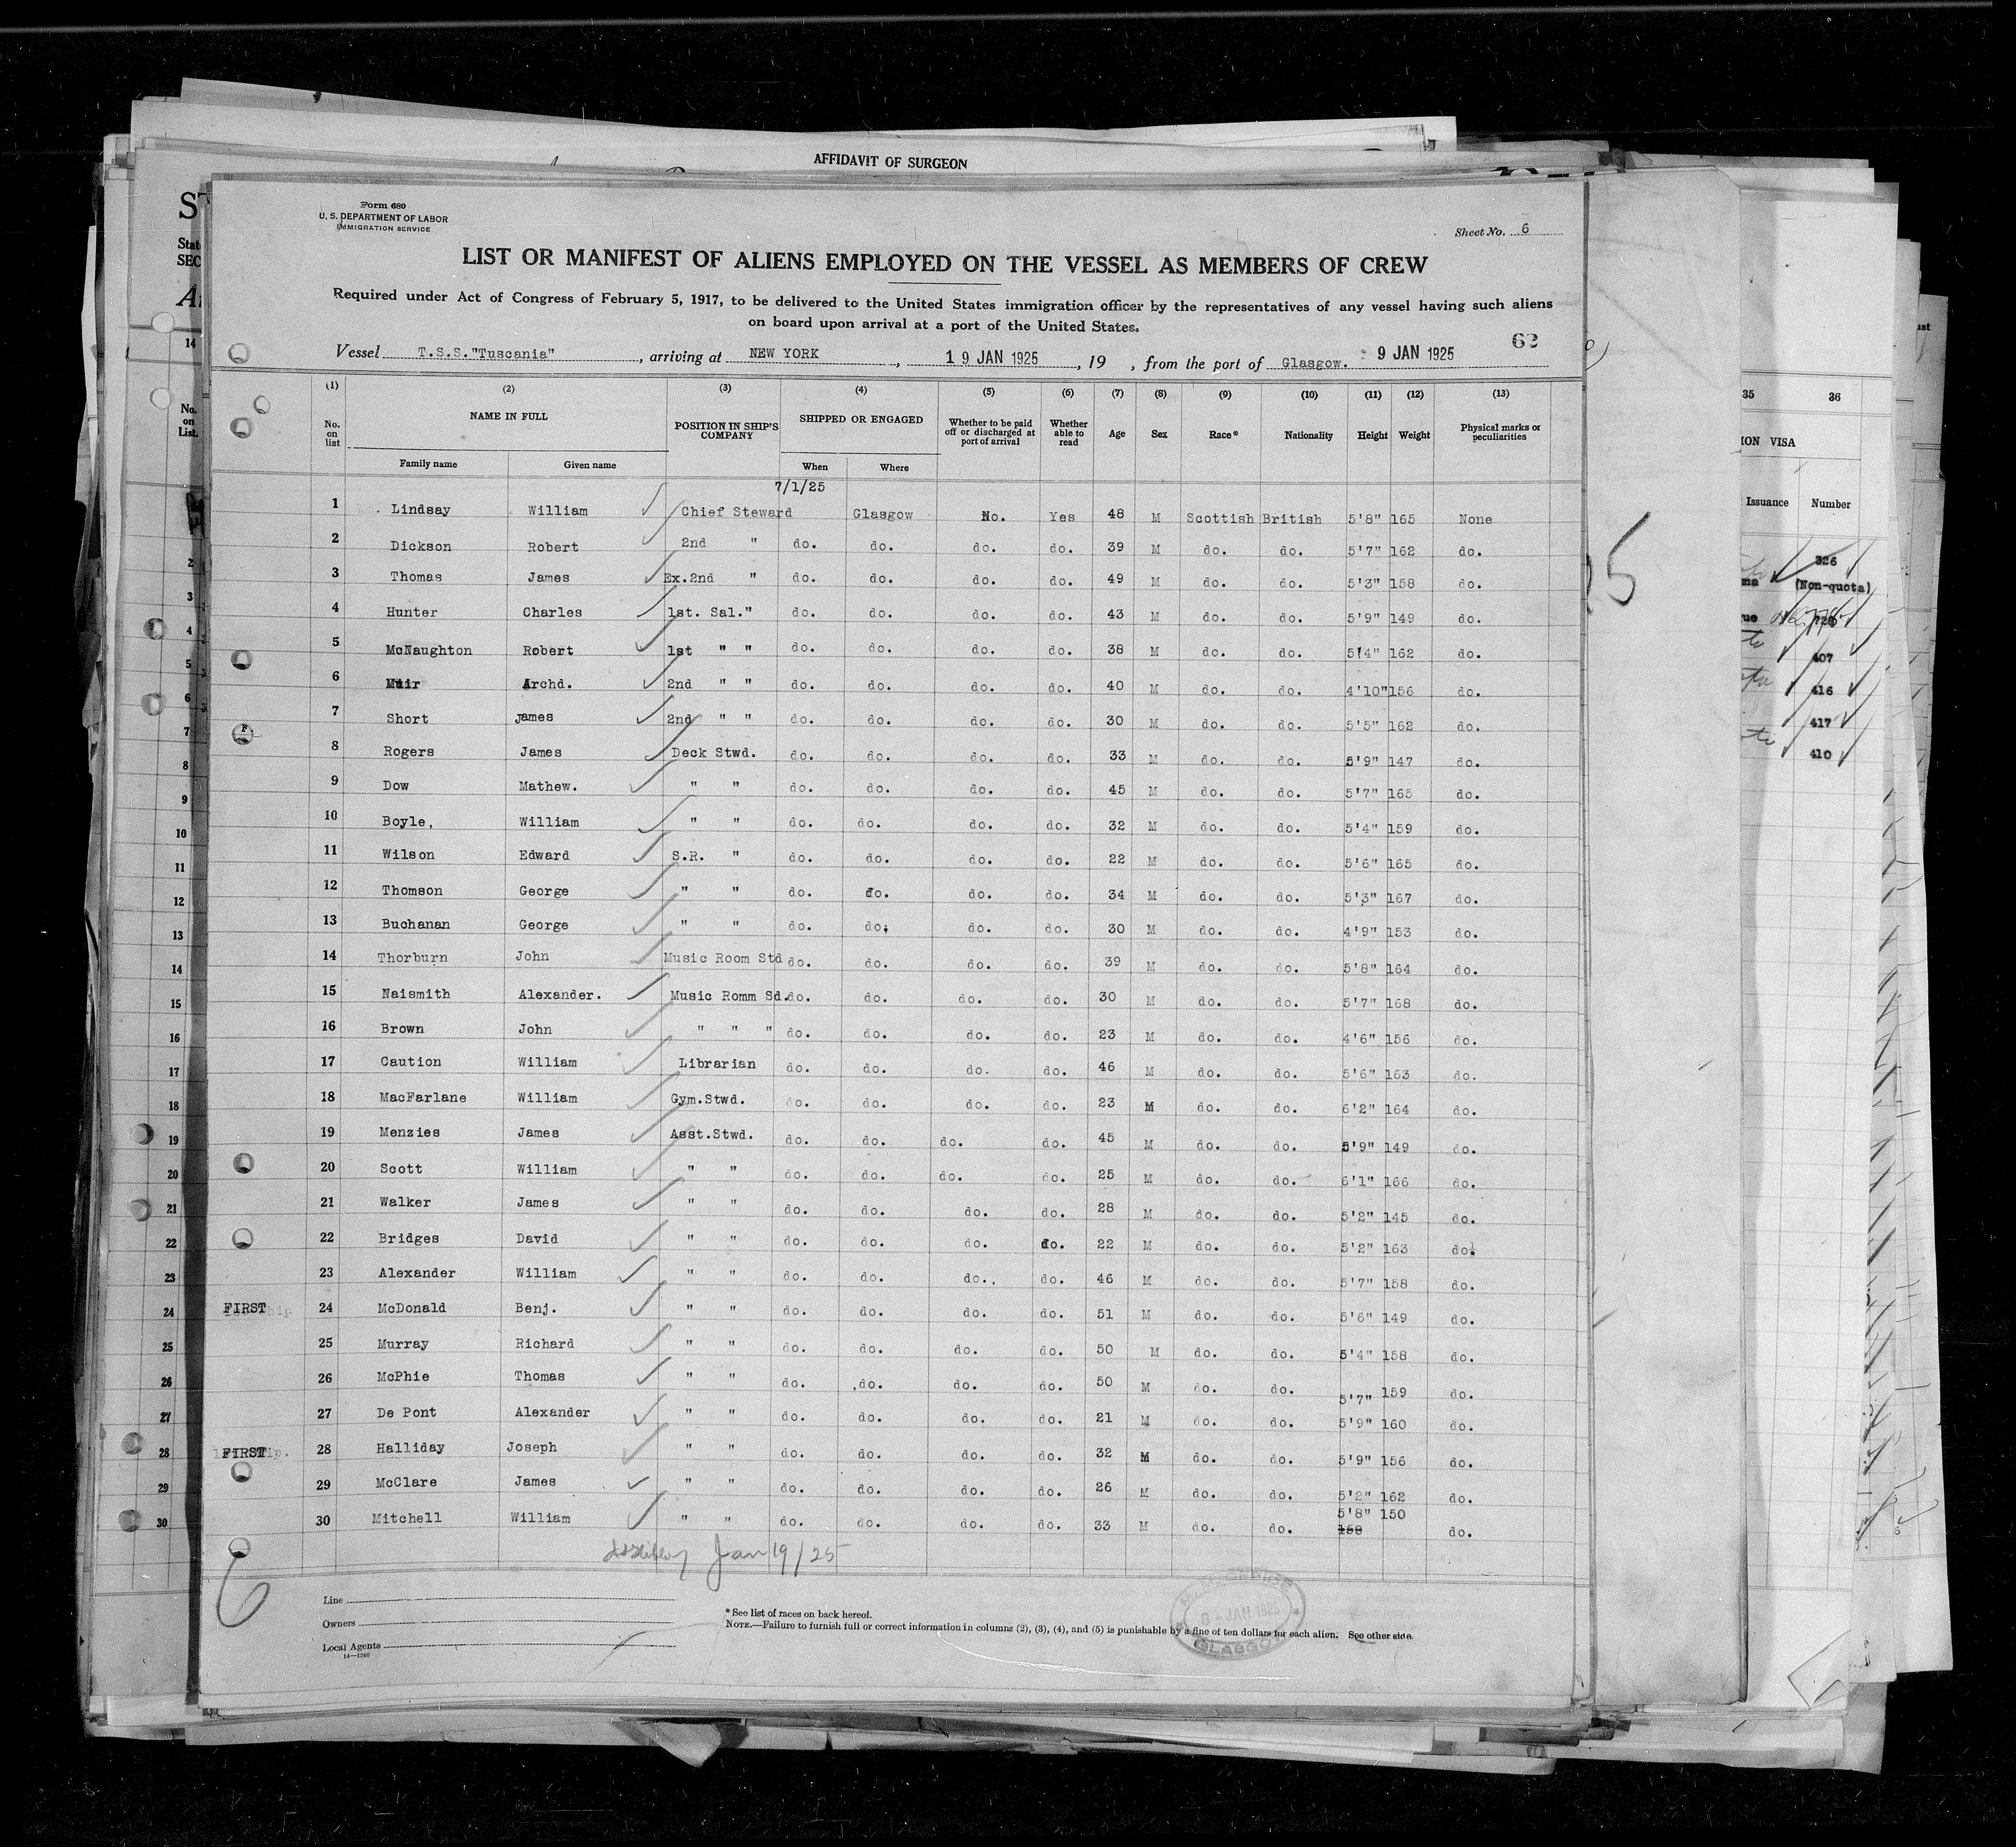 AFFIDAVIT OF SURGEON
Form 680
U. S. DEPARTMENT OF LABOR
IMMIGRATION SERVICE
Sheet No. 6
LIST OR MANIFEST OF ALIENS EMPLOYED ON THE VESSEL AS MEMBERS OF CREW
Required under Act of Congress of February 5, 1917, to be delivered to the United States immigration officer by the representatives of any vessel having such aliens
on board upon arrival at a port of the United States.
62
Vessel T.S.S."Tuscania", arriving at NEW YORK, 19 JAN 1925, 19 , from the port of Glasgow. 9 JAN 1925
(1) (2) (3) (4) (5) (6) (7) (8) (9) (10) (11) (12) (13)
No. on list NAME IN FULL POSITION IN SHIP'S COMPANY SHIPPED OR ENGAGED Whether to be paid off or discharged at port of arrival Whether able to read Age Sex Race* Nationality Height Weight Physical marks or peculiarities
Family name Given name When Where
7/1/25
1 Lindsay William Chief Steward Glasgow No. Yes 48 M Scottish British 5'8" 165 None
2 Dickson Robert 2nd " do. do. do. do. 39 M do. do. 5'7" 162 do.
3 Thomas James Ex.2nd " do. do. do. do. 49 M do. do. 5'3" 158 do.
4 Hunter Charles 1st. Sal." do. do. do. do. 43 M do. do. 5'9" 149 do.
5 McNaughton Robert 1st " " do. do. do. do. 38 M do. do. 5'4" 162 do.
6 Muir Archd. 2nd " " do. do. do. do. 40 M do. do. 4'10" 156 do.
7 Short James 2nd " " do. do. do. do. 30 M do. do. 5'5" 162 do.
8 Rogers James Deck Stwd. do. do. do. do. 33 M do. do. 5'9" 147 do.
9 Dow Mathew. " " do. do. do. do. 45 M do. do. 5'7" 165 do.
10 Boyle, William " " do. do. do. do. 32 M do. do. 5'4" 159 do.
11 Wilson Edward S.R. " do. do. do. do. 22 M do. do. 5'6" 165 do.
12 Thomson George " " do. do. do. do. 34 M do. do. 5'3" 167 do.
13 Buchanan George " " do. do. do. do. 30 M do. do. 4'9" 153 do.
14 Thorburn John Music Room Std do. do. do. do. 39 M do. do. 5'8" 164 do.
15 Naismith Alexander. Music Romm Sd. do. do. do. do. 30 M do. do. 5'7" 168 do.
16 Brown John " " " do. do. do. do. 23 M do. do. 4'6" 156 do.
17 Caution William Librarian do. do. do. do. 46 M do. do. 5'6" 163 do.
18 MacFarlane William Gym.Stwd. do. do. do. do. 23 M do. do. 6'2" 164 do.
19 Menzies James Asst.Stwd. do. do. do. do. 45 M do. do. 5'9" 149 do.
20 Scott William " " do. do. do. do. 25 M do. do. 6'1" 166 do.
21 Walker James " " do. do. do. do. 28 M do. do. 5'2" 145 do.
22 Bridges David " " do. do. do. do. 22 M do. do. 5'2" 163 do.
23 Alexander William " " do. do. do. do. 46 M do. do. 5'7" 158 do.
FIRST 24 McDonald Benj. " " do. do. do. do. 51 M do. do. 5'6" 149 do.
25 Murray Richard " " do. do. do. do. 50 M do. do. 5'4" 158 do.
26 McPhie Thomas " " do. do. do. do. 50 M do. do. 5'7" 159 do.
27 De Pont Alexander " " do. do. do. do. 21 M do. do. 5'9" 160 do.
FIRST 28 Halliday Joseph " " do. do. do. do. 32 M do. do. 5'9" 156 do.
29 McClare James " " do. do. do. do. 26 M do. do. 5'2" 162 do.
30 Mitchell William " " do. do. do. do. 33 M do. do. 5'8" 150 do.
Jan 19/25
6
Line
Owners
Local Agents
14—1240
* See list of races on back hereof.
NOTE.—Failure to furnish full or correct information in columns (2), (3), (4), and (5) is punishable by a fine of ten dollars for each alien. See other side.
JAN 1925
GLASGOW
35 36
ION VISA
Issuance Number
326
(Non-quota)
407
416
417
410